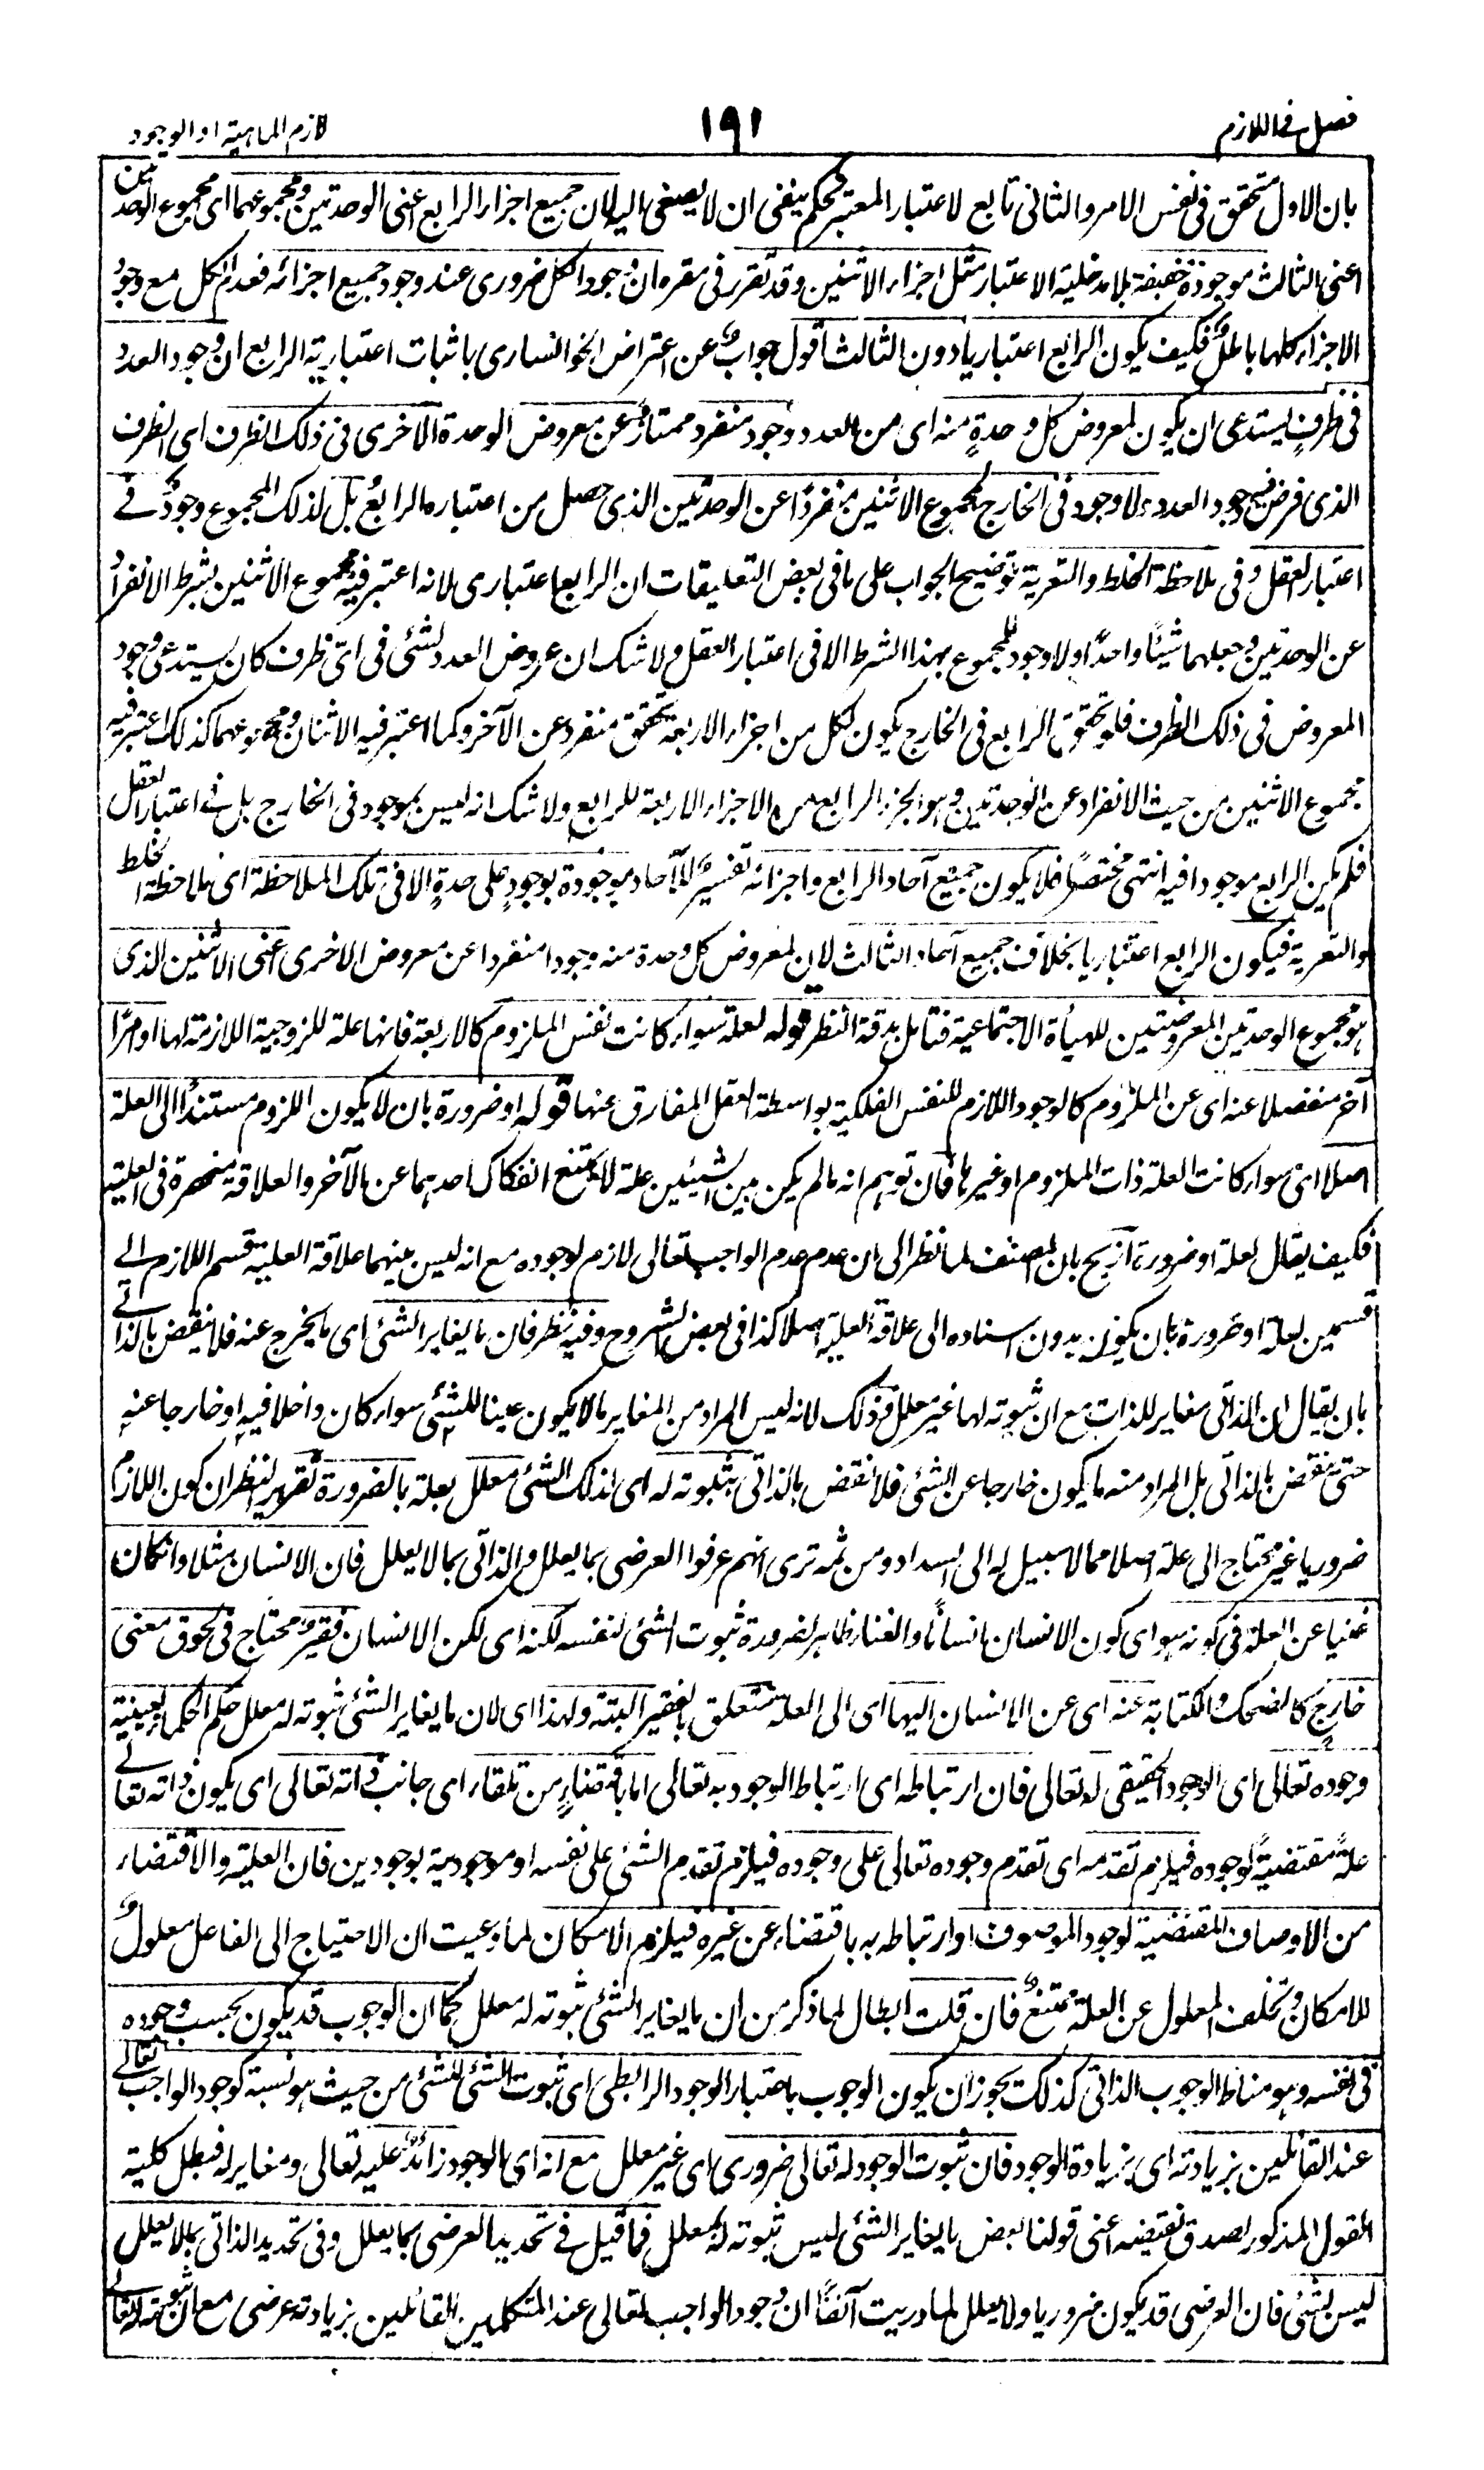 فصل فى اللازم ١٩١ لازم الماهية او الوجود
بان الاول متحقق فى نفس الامر والثانى تابع لاعتبار المعتبر تحكم ينبغى ان لا يصغى اليه لان جميع اجزاء الرابع اعنى الوحدتين ومجموعهما اى مجموع الوحدتين
اعنى الثالث موجودة حقيقة بلا مدخلية الاعتبار مثل اجزاء الاثنين وقد تقرر فى مقره ان وجود الكل ضرورى عند وجود جميع اجزائه فعدم الكل مع وجود
الاجزاء كلها باطل فكيف يكون الرابع اعتباريا دون الثالث اقول جواب عن اعتراض الخوانسارى باثبات اعتبارية الرابع ان وجود العدد
فى ظرف يستدعى ان يكون لمعروض كل وحدةٍ منه اى من العدد وجود منفرد ممتازٌ عن معروض الوحدة الاخرى فى ذلك الظرف اى الظرف
الذى فرض فيه وجود العدد ولا وجود فى الخارج لمجموع الاثنين منفردًا عن الوحدتين الذى حصل من اعتباره الرابعُ بل لذلك المجموع وجودٌ فى
اعتبار العقل وفى ملاحظة الخلط والتعرية توضيح الجواب على ما فى بعض التعليقات ان الرابع اعتبارى لانه اعتبر فيه مجموع الاثنين بشرط الانفراد
عن الوحدتين وجعلهما شيئًا واحدًا ولا وجود للمجموع بهذا الشرط الا فى اعتبار العقل ولا شك ان عروض العدد لشئ فى اىّ ظرف كان يستدعى وجود
المعروض فى ذلك الظرف فلو تحقق الرابع فى الخارج يكون لكل من اجزاء الاربعة تحقق منفرد عن الآخر وكما اعتبر فيه الاثنان ومجموعهما كذلك اعتبر فيه
مجموع الاثنين من حيث الانفراد عن الوحدتين وهو الجزء الرابع من الاجزاء الاربعة للرابع ولا شك انه ليس بموجود فى الخارج بل فى اعتبار العقل
فلم يكن الرابع موجودا فيه انتهى مختصرًا فلا يكون جميع آحاد الرابع واجزائه تفسيرٌ للآحاد موجودة بوجودٍ على حدةٍ الا فى تلك الملاحظة اى ملاحظة الخلط
والتعرية فيكون الرابع اعتباريا بخلاف جميع آحاد الثالث لان لمعروض كل وحدة منه وجودا منفردا عن معروض الاخرى اعنى الاثنين الذى
هو مجموع الوحدتين المعروضتين للهيأة الاجتماعية فتامل بدقة النظر قوله لعلة سواء كانت نفس الملزوم كالاربعة فانها علة للزوجية اللازمة لها او امرًا
آخر منفصلا عنه اى عن الملزوم كالوجود اللازم للنفس الفلكية بواسطة العقل المفارق عنها قوله او ضرورة بان لا يكون اللزوم مستندًا الى العلة
اصلا اى سواء كانت العلة ذات الملزوم او غيرها فان توهم انه ما لم يكن بين الشيئين علة لا يمتنع انفكاك احدهما عن الآخر والعلاقة منحصرة فى العلية
فكيف يقال لعلة او ضرورة ازيح بان المصنف لما نظر الى ان عدم عدم الواجب تعالى لازم لوجوده مع انه ليس بينهما علاقة العلية قسم اللازم الى
قسمين لعلة او ضرورة بان يكون بدون اسناده الى علاقة العلية اصلا كذا فى بعض الشروح وفيه نظر فان ما يغاير الشئ اى ما يخرج عنه فلا ينقض بالذاتى
بان يقال ان الذاتى مغاير للذات مع ان ثبوته لها غير معلل وذلك لانه ليس المراد من المغاير ما لا يكون عينا للشئ سواء كان داخلا فيه او خارجا عنه
حتى ينقض بالذاتى بل المراد منه ما يكون خارجا عن الشئ فلا نقض بالذاتى ثبوته له اى لذلك الشئ معلل بعلة بالضرورة تقرير النظر ان كون اللازم
ضروريا غير محتاج الى علة اصلا مما لا سبيل له الى السداد ومن ثمه ترى انهم عرفوا العرضى بما يعلل والذاتى بما لا يعلل فان الانسان مثلا وان كان
غنيا عن العلة فى كونه هو اى كون الانسان انسانًا والغناء ظاهر لضرورة ثبوت الشئ لنفسه لكنه اى لكن الانسان فقيرٌ محتاج فى لحوق معنى
خارجٍ كالضحك والكتابة عنه اى عن الانسان اليها اى الى العلة متعلق بالفقير البتة ولهذا اى لان ما يغاير الشئ ثبوته له معلل حكم الحكماء بعينية
وجوده تعالى اى الوجود الحقيقى له تعالى فان ارتباطه اى ارتباط الوجود به تعالى اما باقتضاءٍ من تلقاء اى جانب ذاته تعالى اى يكون ذاته تعالى
علةً مقتضيةً لوجوده فيلزم تقدمه اى تقدم وجوده تعالى على وجوده فيلزم تقدم الشئ على نفسه او موجودية بوجودين فان العلية والاقتضاء
من الاوصاف المقتضية لوجود الموصوف او ارتباطه به باقتضاء عن غيره فيلزم الامكان لما وعيت ان الاحتياج الى الفاعل معلولٌ
للامكان وتخلف المعلول عن العلة ممتنعٌ فان قلت ابطال لما ذكر من ان ما يغاير الشئ ثبوته له معلل كما ان الوجوب قد يكون بحسب وجوده
فى نفسه وهو مناط الوجوب الذاتى كذلك يجوز ان يكون الوجوب باعتبار الوجود الرابطى اى ثبوت الشئ للشئ من حيث هو نسبة كوجود الواجب تعالى
عند القائلين بزيادته اى بزيادة الوجود فان ثبوت الوجود له تعالى ضرورى اى غير معلل مع انه اى الوجود زائدٌ عليه تعالى ومغاير له فبطل كلية
المقول المذكور لصدق نقيضه اعنى قولنا بعض ما يغاير الشئ ليس ثبوته له بمعلل فما قيل فى تحديد العرضى بما يعلل وفى تحديد الذاتى بما لا يعلل
ليس بشئ فان العرضى قد يكون ضروريا ولا يعلل لما دريت آنفًا ان وجود الواجب تعالى عند المتكلمين القائلين بزيادته عرضى مع ان ثبوته له تعالى